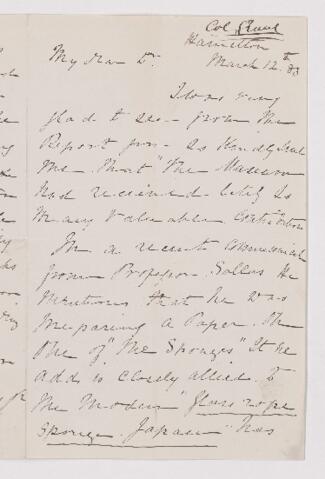 Col Grant
Hamilton
March 12th 83
My dear Dr.
I was very
glad to see from the
Report you so kindly sent
me that "The Museum
had received lately so
many valuable contributions
In a recent communicat
from Professor Sollas He
mentions that he was
preparing a Paper. The
One of "The Sponges" It he
adds is closely allied to
the modern "Glass rope
Sponge Japan" has